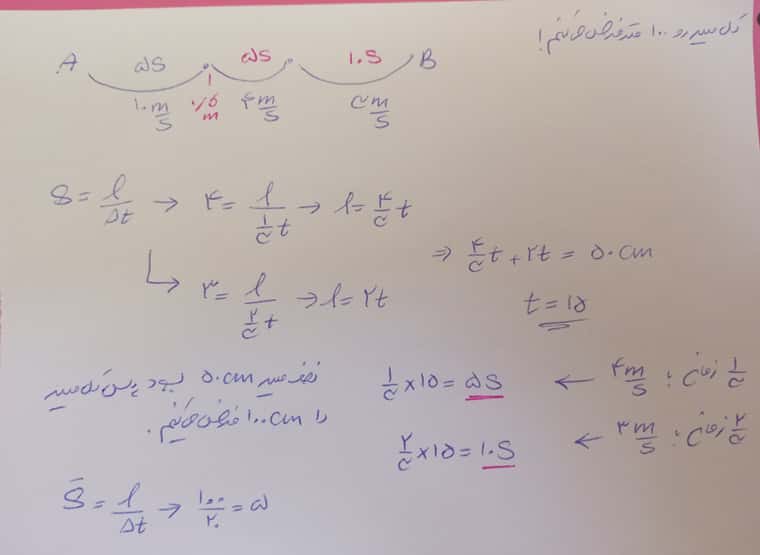 کل مسیر رو ۱۰۰ متر فرض می‌کنیم!
A ۵s ۵s ۱۰s B
۱۰ m/s ۴ m/s ۳ m/s
m
S = l/Δt → ۴ = l/(۱/۳ t) → l = ۴/۳ t
↳ ۳ = l/(۲/۳ t) → l = ۲t
⇒ ۴/۳ t + ۲t = ۵۰ cm
t = ۱۵
نصف مسیر ۵۰ cm بود پس کل مسیر
را ۱۰۰ cm فرض می‌کنیم.
۱/۳ زمان: ۴ m/s ← ۱/۳ × ۱۵ = ۵s
۲/۳ زمان: ۳ m/s ← ۲/۳ × ۱۵ = ۱۰s
S̄ = l/Δt → ۱۰۰/۲۰ = ۵